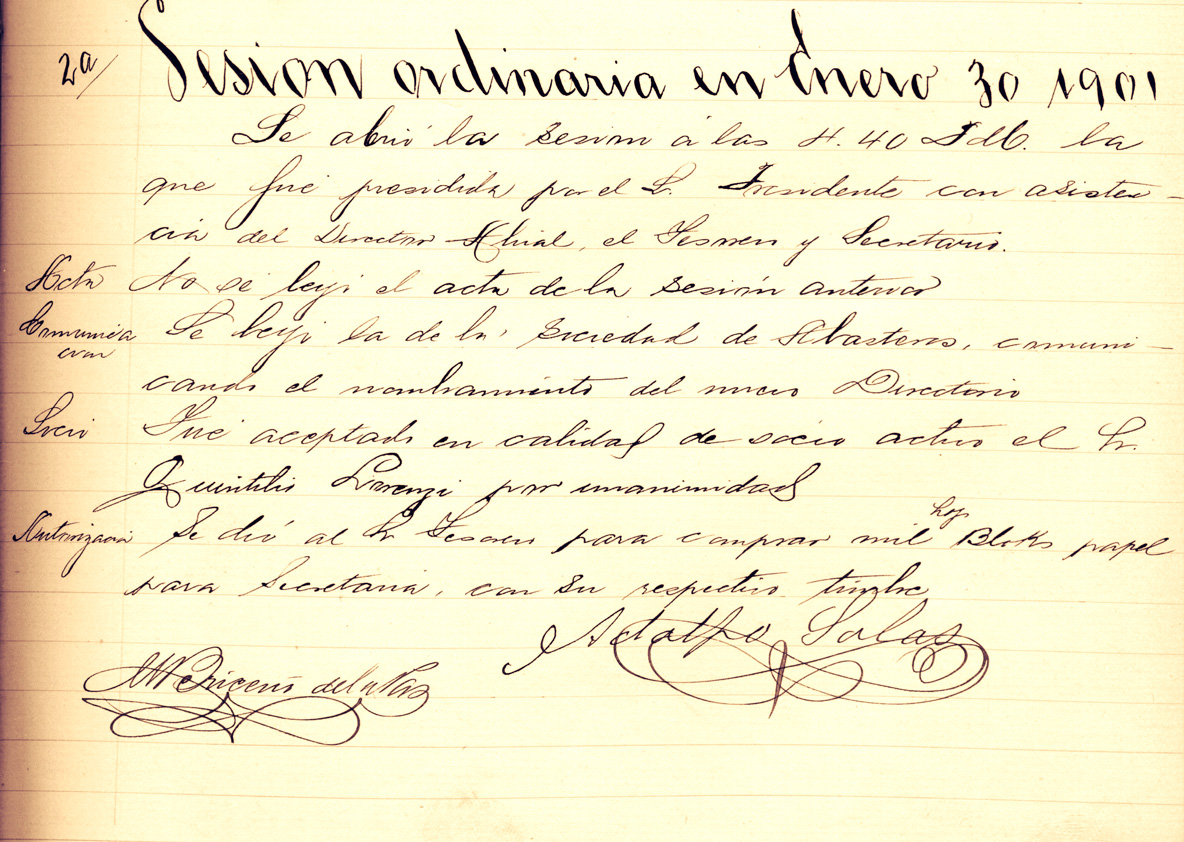 2ª/ Sesion ordinaria en Enero 30 1901
Se abrió la sesion á las 4.40 P.M. la
que fué presidida por el Sr. Presidente con asisten-
cia del Director, el Tesorero y Secretario.
Acta No se leyó el acta de la sesion anterior
Comunica Se leyó la de la Sociedad de Abasteros, comuni-
cion
cando el nombramiento del nuevo Directorio
Socio Fué aceptado en calidad de socio activo el Sr.
Quintilio Lorenzi por unanimidad
hojs
Autorizacion Se dió al Sr Tesorero para comprar mil Bloks papel
para Secretaria, con su respectivo timbre
Adolfo Salas
Briceño de la Paz